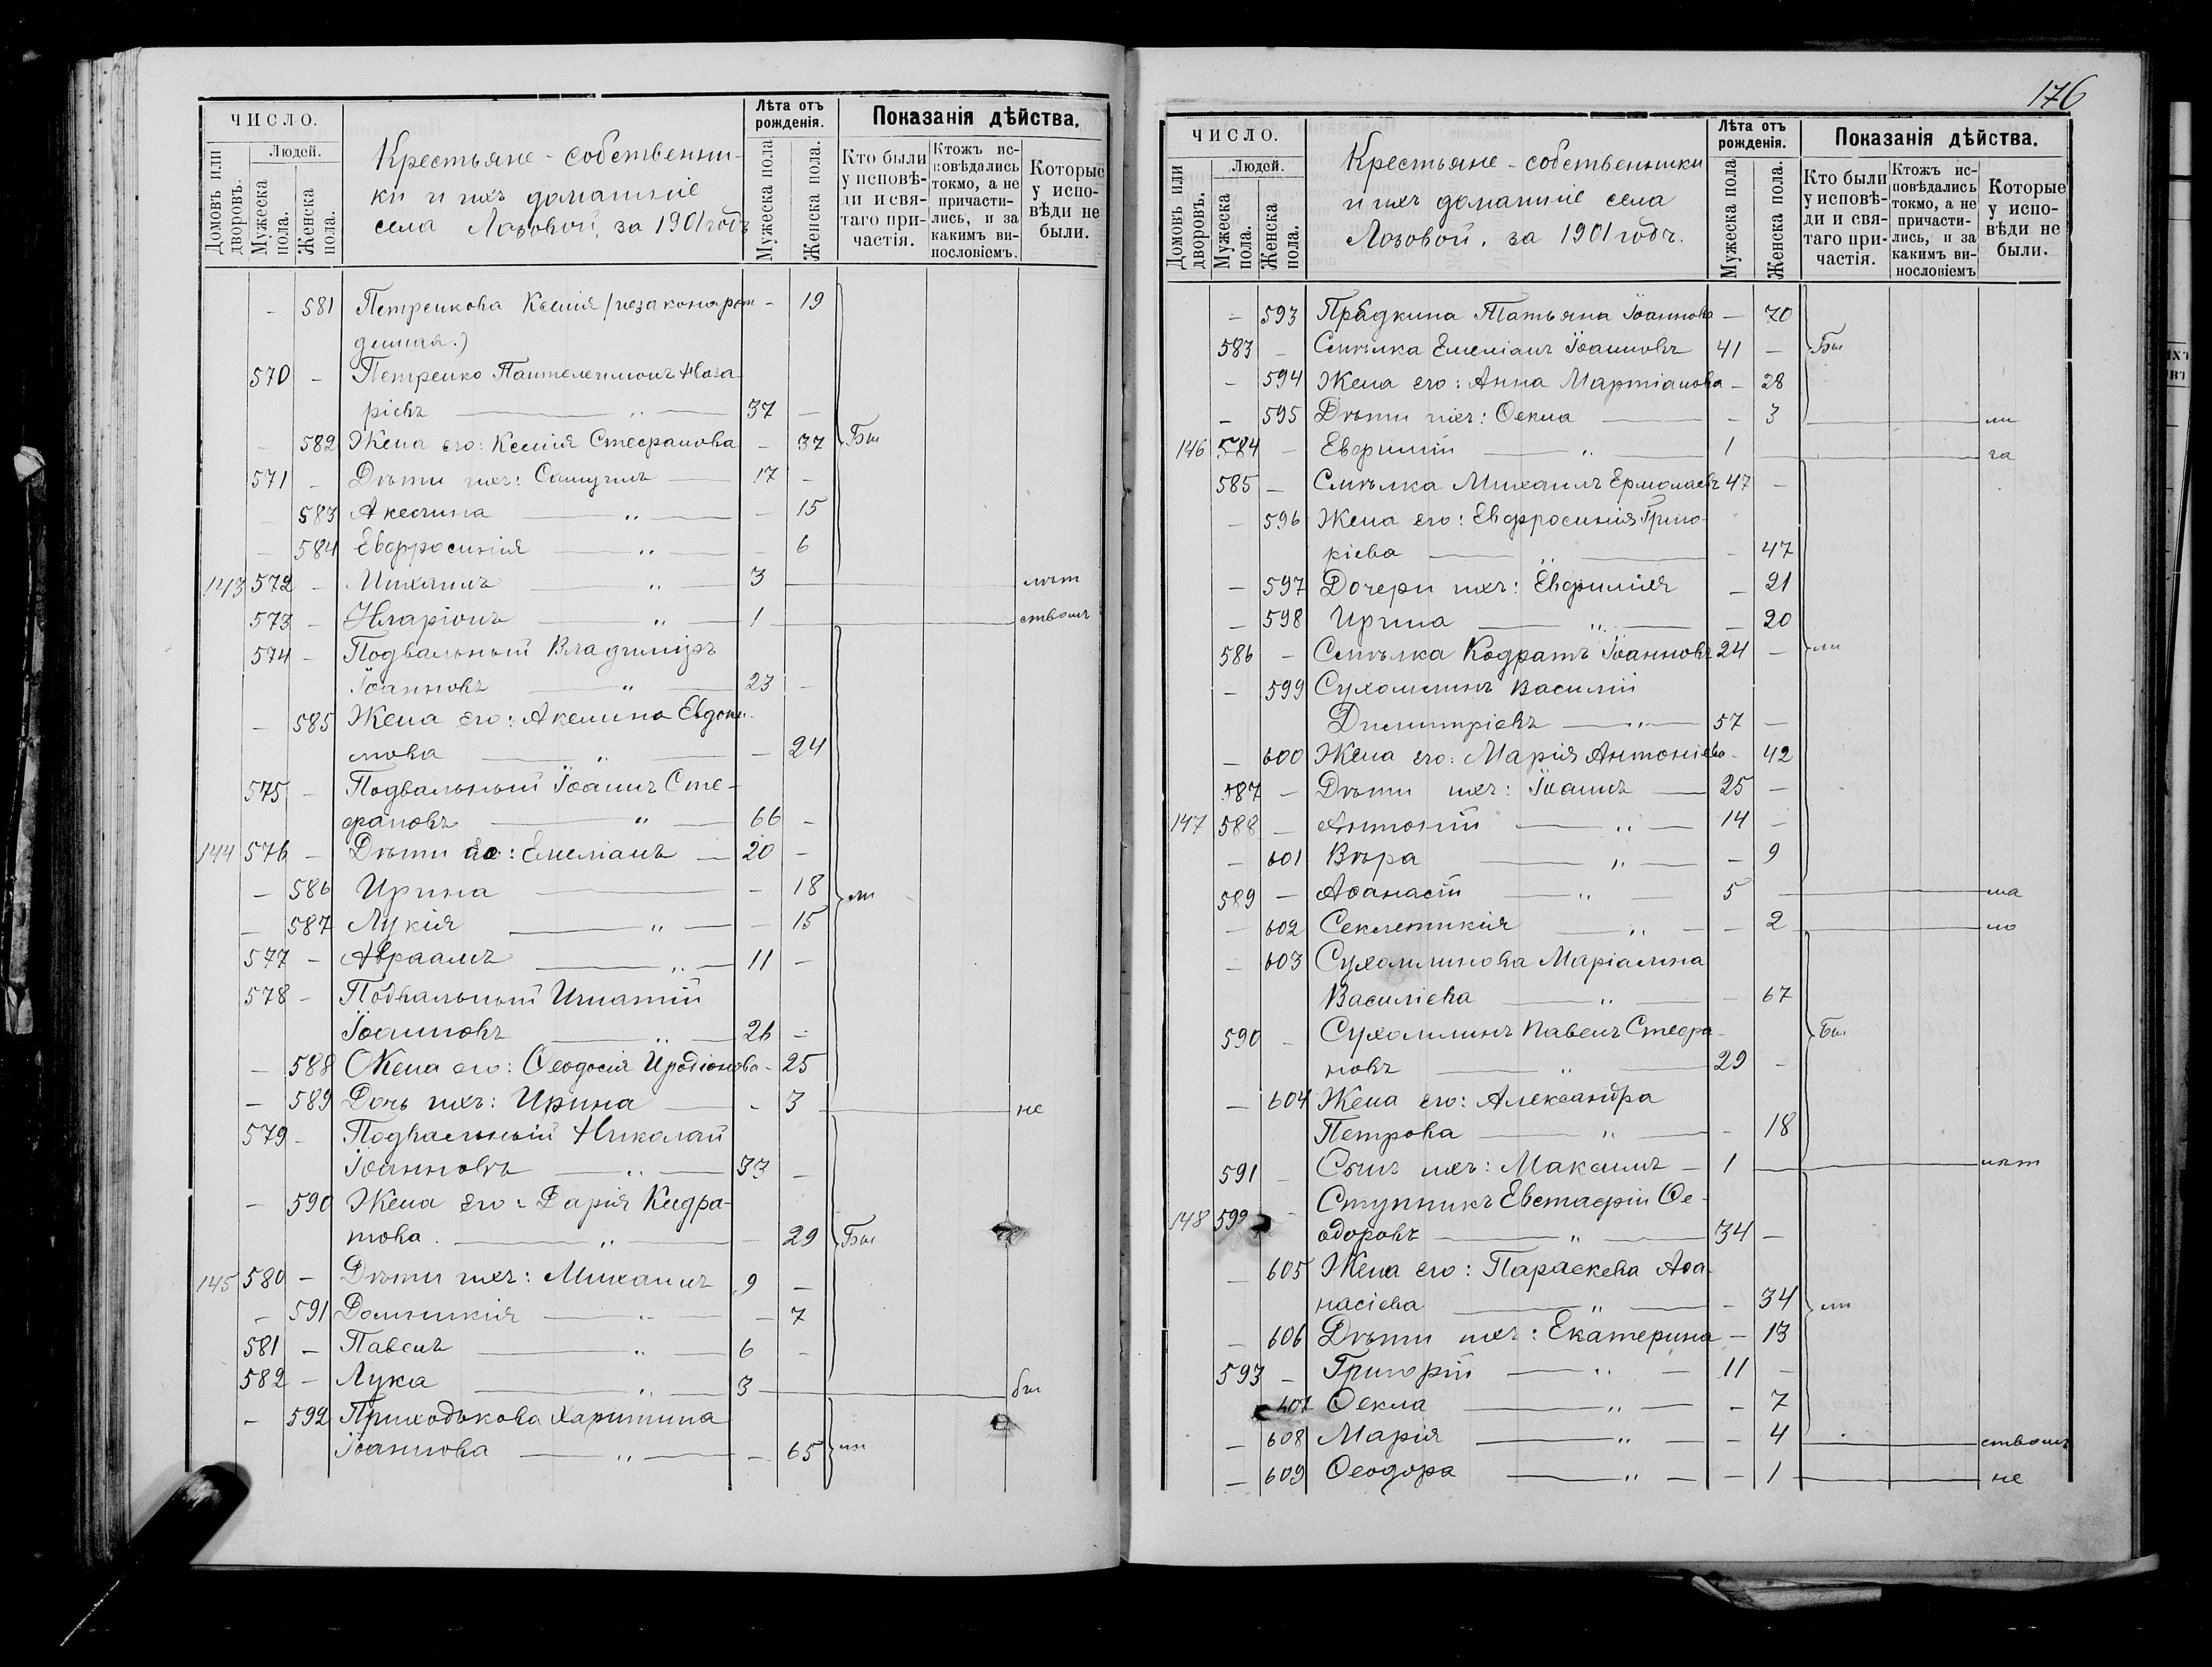 ЧИСЛО.
Домовъ или дворовъ.
Людей.
Мужеска пола.
Женска пола.
Крестьяне-собственни-
ки и ихъ домашніе
села Лозовой, за 1901 годъ
Лѣта отъ рожденія.
Мужеска пола
Женска пола.
Показанія дѣйства.
Кто были у исповѣ-ди и свя-таго при-частія.
Ктожъ ис-повѣдались токмо, а не причасти-лись, и за какимъ ви-нословіемъ.
Которые у испо-вѣди не были.
- 581 Петренкова Ксенія (незаконорож- - 19
денная.)
570 - Петренко Пантелеимонъ Наза-
ріевъ 37 -
- 582 Жена его: Ксенія Стефанова - 37 Бы
571 - Дѣти ихъ: Самуилъ 17 -
- 583 Акилина - 15
- 584 Евфросинія - 6
143 572 - Михаилъ 3 лѣт
573 - Иларіонъ 1 ствомъ
574 - Подвальный Владиміръ
Іоанновъ 23 -
- 585 Жена его: Акилина Евдоки-
мова - 24
575 - Подвальный Іоаннъ Сте-
фановъ 66 -
144 576 - Дѣти его: Емеліанъ 20 -
- 586 Ирина - 18 ли
- 587 Лукія - 15
577 - Авраамъ 11 -
578 - Подвальный Игнатій
Іоанновъ 26 -
- 588 Жена его: Ѳеодосія Иродіонова - 25
- 589 Дочь ихъ: Ирина - 3 не
579 - Подвальный Николай
Іоанновъ 33 -
- 590 Жена его: Дарія Кодра-
това - 29 Бы
145 580 - Дѣти ихъ: Михаилъ 9 -
- 591 Домникія - 7
581 - Павелъ 6 -
582 - Лука 3 бы
- 592 Приходькова Харитина
Іоаннова - 65 ли
176
ЧИСЛО.
Домовъ или дворовъ.
Людей.
Мужеска пола.
Женска пола.
Крестьяне-собственники
и ихъ домашніе села
Лозовой, за 1901 годъ.
Лѣта отъ рожденія.
Мужеска пола
Женска пола.
Показанія дѣйства.
Кто были у исповѣ-ди и свя-таго при-частія.
Ктожъ ис-повѣдались токмо, а не причасти-лись, и за какимъ ви-нословіемъ
Которые у испо-вѣди не были.
- 593 Прядкина Татьяна Іоаннова - 70
583 - Смѣлка Емеліанъ Іоанновъ 41 - Бы
- 594 Жена его: Анна Мартіанова - 28
- 595 Дѣти ихъ: Ѳекла - 3 ли
146 584 - Евфимій 1 за
585 - Смѣлка Михаилъ Ермолаевъ 47 -
- 596 Жена его: Евфросинія Григо-
ріева - 47
- 597 Дочери ихъ: Евфимія - 21
- 598 Ирина - 20
586 - Смѣлка Кодратъ Іоанновъ 24 - ли
- 599 Сухомлинъ Василій
Димитріевъ 57 -
- 600 Жена его: Марія Антоніева - 42
587 - Дѣти ихъ: Іоаннъ 25 -
147 588 - Антоній 14 -
- 601 Вѣра - 9
589 - Аѳанасій 5 ма
- 602 Секлетикія - 2 ло
- 603 Сухомлинова Маріамна
Василіева - 67
590 - Сухомлинъ Павелъ Стефа-
новъ 29 - Бы
- 604 Жена его: Александра
Петрова - 18
591 - Сынъ ихъ: Максимъ 1 лѣт
148 592 - Ступникъ Евстафій Ѳе-
одоровъ 34 -
- 605 Жена его: Параскева Аѳа-
насіева - 34 ли
- 606 Дѣти ихъ: Екатерина - 13
593 - Григорій 11 -
607 Ѳекла - 7
- 608 Марія - 4 ствомъ
- 609 Ѳеодора - 1 не